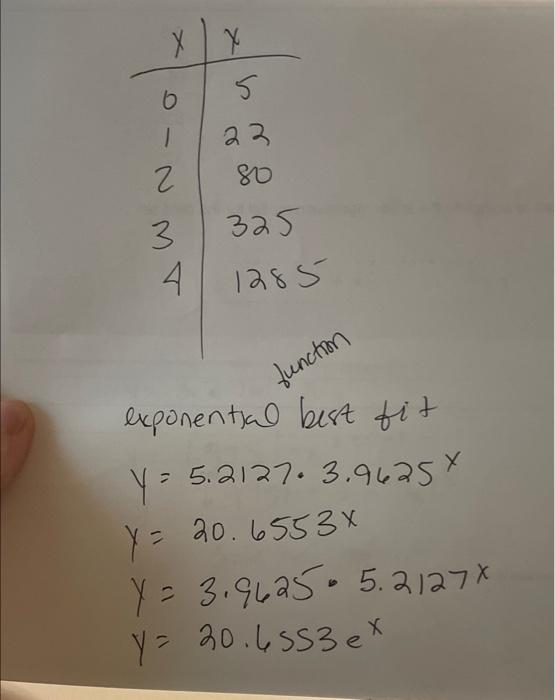 x | x
0 | 5
1 | 22
2 | 80
3 | 325
4 | 1285
function
exponential best fit
y = 5.2127 · 3.9625^x
y = 20.6553^x
y = 3.9625 · 5.2127^x
y = 20.6553 e^x